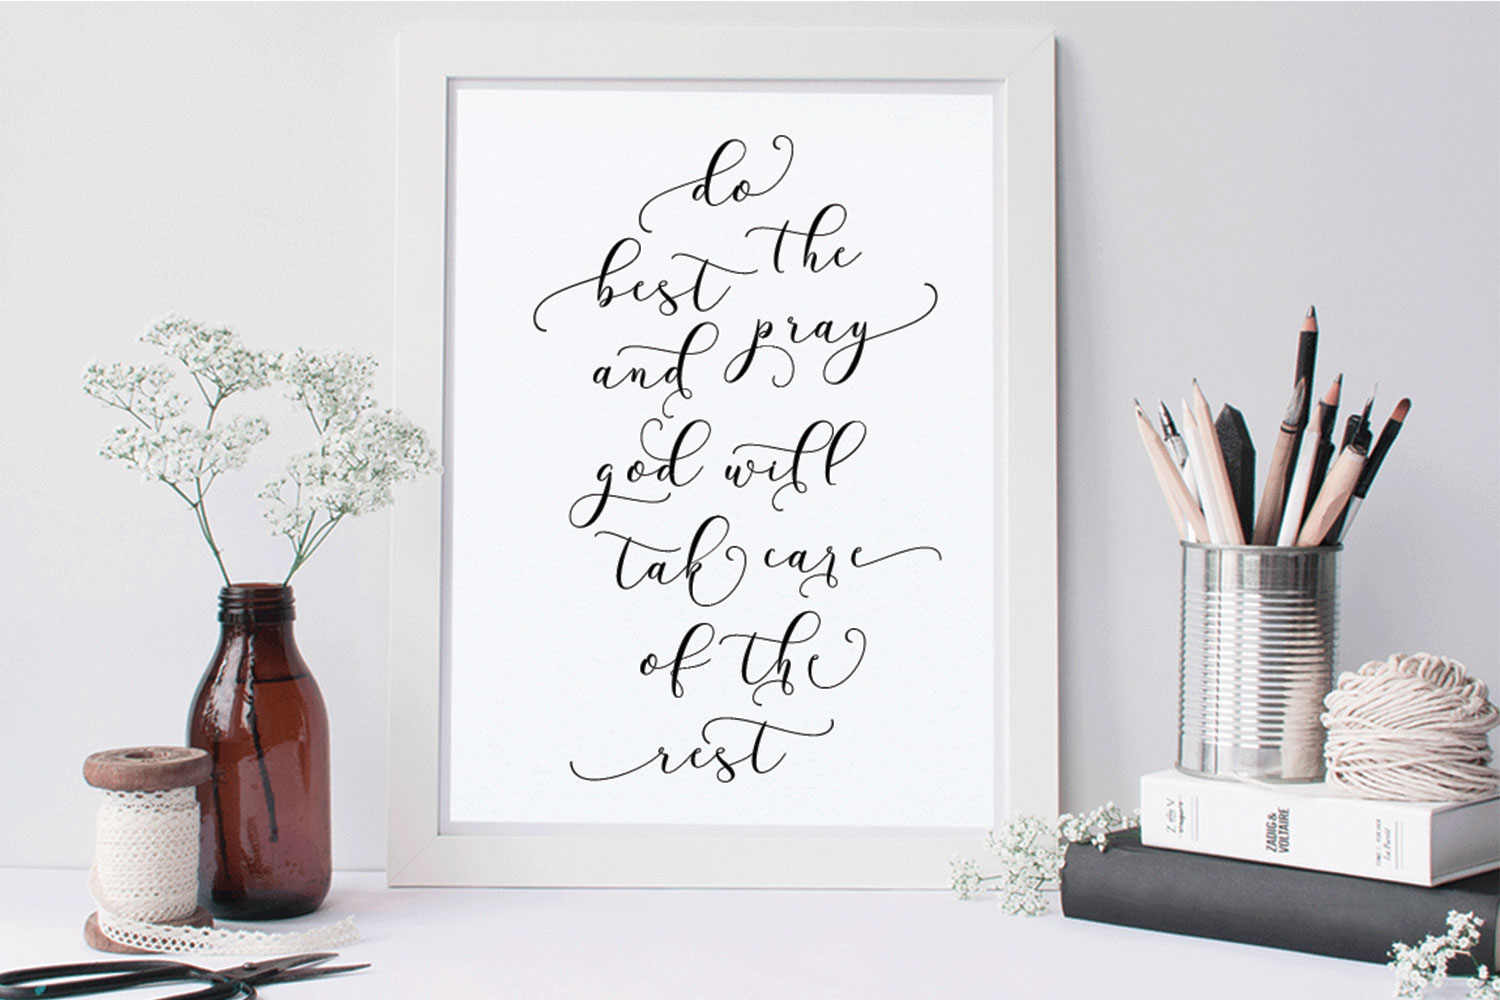 do
the
best
and pray
god will
tak care
of the
rest
ZADIG&
VOLTAIRE